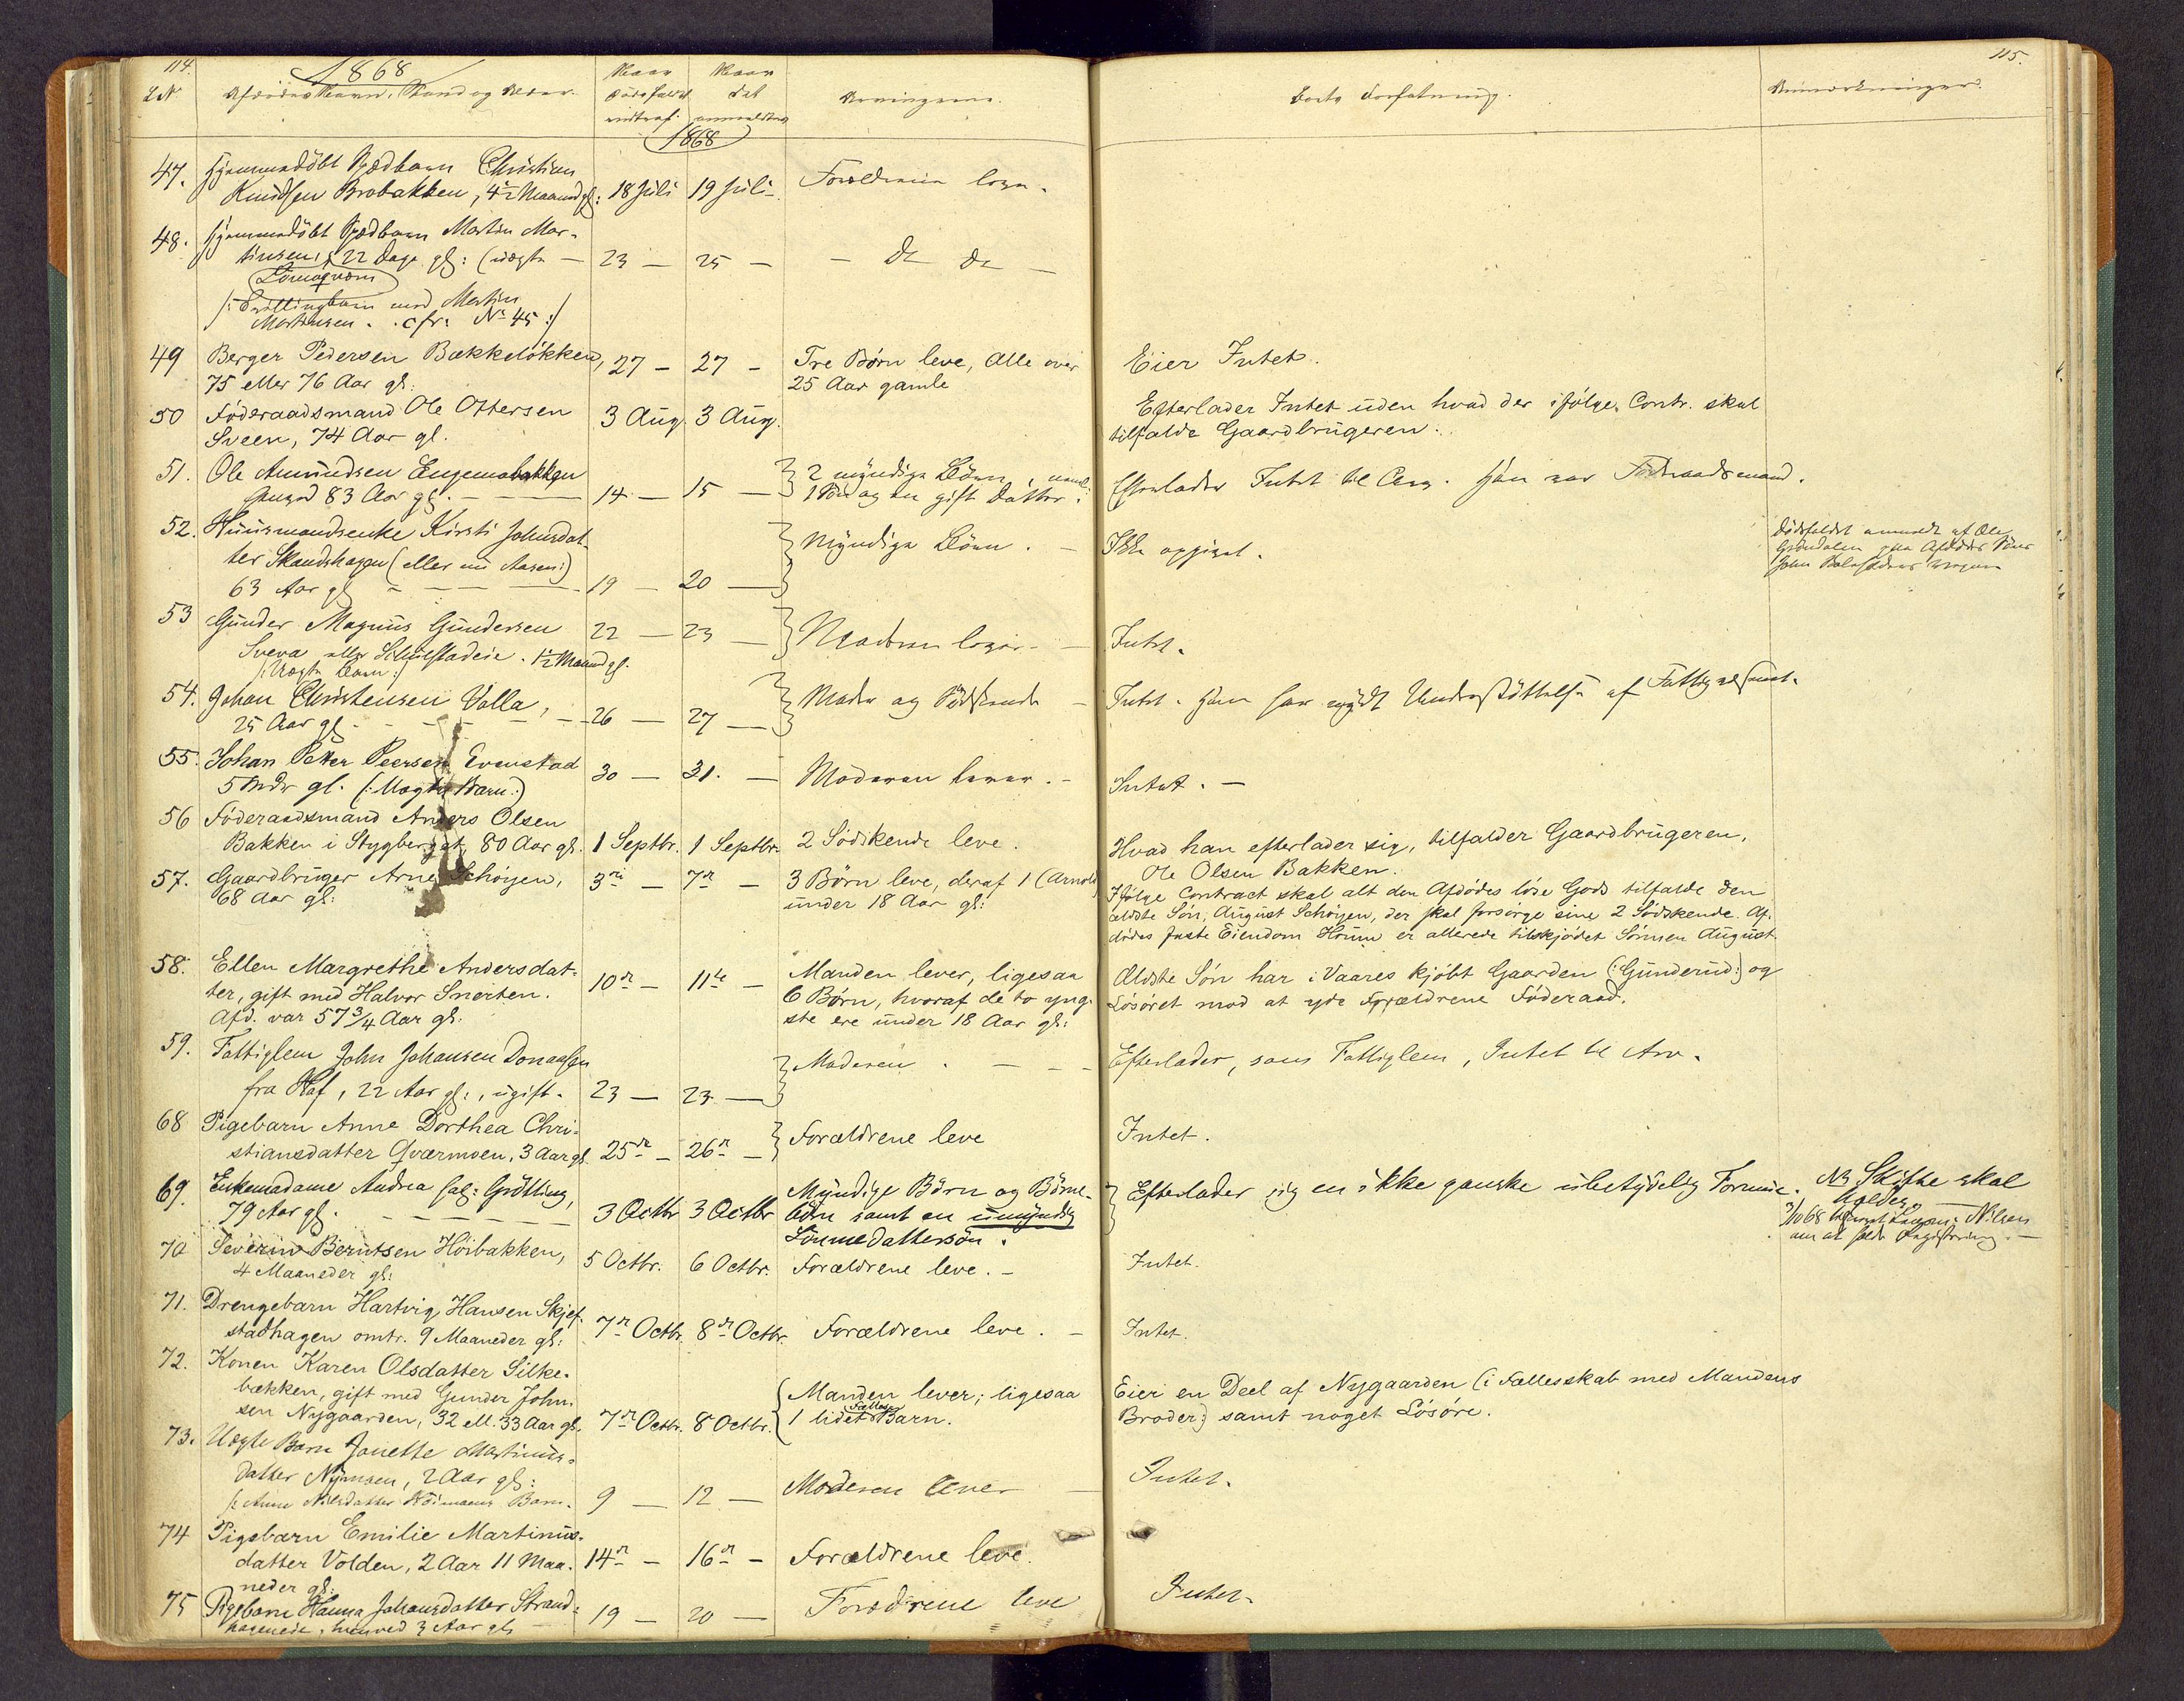 114.
115.
1868
L N
Afdødes Navn, Stand og Alder.
Naar Dødsfaldet indtraf.
Naar det anmeldtes
Arvingerne.
Boets Forfatning.
Anmærkninger.
1868
47. Hjemmedöbt Spædbarn Christian
Knudsen Brobakken, 4½ Maaned gl: 18 Juli 19 Juli Forældrene leve.
48. Hjemmedöbt Spædbarn Martin Mar-
tinsen, 22 Dage gl: (uægte — 23 — 25 — — do do —
/: Tvillingbarn med Martin
Martinsen. cfr. No 45 :/
49 Berger Pedersen Bækkelökken, 27 — 27 — Tre Børn leve, Alle over Eier Intet.
75 eller 76 Aar gl: 25 Aar gamle
50 Föderaadsmand Ole Ottersen 3 Aug. 3 Aug. Efterlader Intet uden hvad der ifölge Contr. skal
Sveen, 74 Aar gl. tilfalde Gaardbrugeren.
51. Ole Amundsen 2 myndige Börn, Efterlader Intet til Arv. Han var Föderaadsmand.
83 Aar gl. — 14 — 15 — 1 Sön og en gift Datter.
52. Huusmandsenke Kirsti Johnsdat- Myndige Börn. — Ikke opgivet. Dödsfaldet anmeldt af Ole
ter Skandshagen (eller nu Aasen:) paa Afdödes Söns
63 Aar gl 19 — 20 — John
53 Gunder Magnus Gundersen 22 — 23 — Moderen lever — Intet.
Sveva eller 1½ Maaned gl.
/: Uægte Barn :/
54. Johan Christensen Volla, Moder og Södskende — Intet. Han har nydt Understöttelse af Fattigvæsenet.
25 Aar gl — 26 — 27 —
55. Johan Peter Peersen Evenstad 30 — 31. — Moderen lever. — Intet. —
5 Mdr gl. (: Uægte Barn :)
56 Föderaadsmand Anders Olsen
Bakken i Stygberget, 80 Aar gl. 1 Septbr. 1 Septbr. 2 Södskende leve. Hvad han efterlader sig, tilfalder Gaardbrugeren,
Ole Olsen Bakken.
57. Gaardbruger Arne Schöyen, 3die — 7de — 3 Börn leve, deraf 1 (Arnold) Ifölge Contract skal alt den Afdödes löse Gods tilfalde den
68 Aar gl: under 18 Aar gl: ældste Sön, August Schöyen, der skal forsörge sine 2 Södskende. Af-
dödes faste Eiendom er allerede tilskjödet Sönnen August.
58. Ellen Margrethe Andersdat- 10de — 11te — Manden lever, ligesaa Ældste Sön har i Vaares kjöbt Gaarden (: Gunderud :) og
ter, gift med Halvor Snerten. 6 Börn, hvoraf de to yng- Lösöret mod at yde Forældrene Föderaad.
Afd. var 57 3/4 Aar gl. ste ere under 18 Aar gl:
59. Fattiglem John Johansen Donaasen Moderen. — Efterlader, som Fattiglem, Intet til Arv.
fra Haf, 22 Aar gl:, ugift. 23 — 23 —
68 Pigebarn Anne Dorthea Chri- Forældrene leve Intet.
stiansdatter Qværnmoen, 3 Aar gl. 25de — 26de —
69. Enkemadame Andrea sal: Grötting, Myndige Börn og Börne- Efterlader sig en ikke ganske ubetydelig Formue. NB Skifte skal
79 Aar gl. — 3 Octbr 3 Octbr börn samt en umyndig holdes.
Sönnedattersön. 3/10 68 Nilsen
om at holde Registrering. —
70 Severin Berntsen Höibakken, 5 Octbr. 6 Octbr. Forældrene leve. — Intet.
4 Maaneder gl:
71. Drengebarn Hartvig Hansen Skjef- 7de Octbr. 8de Octbr. Forældrene leve. — Intet.
stadhagen omtr. 9 Maaneder gl:
72. Konen Karen Olsdatter Silke-
bækken, gift med Gunder John- Manden lever; ligesaa Eier en Deel af Nygaarden (i Fællesskab med Mandens
sen Nygaarden, 32 ell. 33 Aar gl. 7de Octbr. 8 Octbr. 1 lidet Fælles Barn. Broder:) samt noget Lösöre.
73. Uægte Barn Janette Martinus-
datter Nymoen, 2 Aar gl: Moderen lever — Intet.
/: Anne Nilsdatter Barn. 9 — 12 —
74 Pigebarn Emilie Martinus-
datter Volden, 2 Aar 11 Maa- 14de — 16de — Forældrene leve.
neder gl:
75 Pigebarn Hanna Johansdatter Strand- 19 — 20 — Forældrene leve Intet.
hageneie, henved 3 Aar gl.